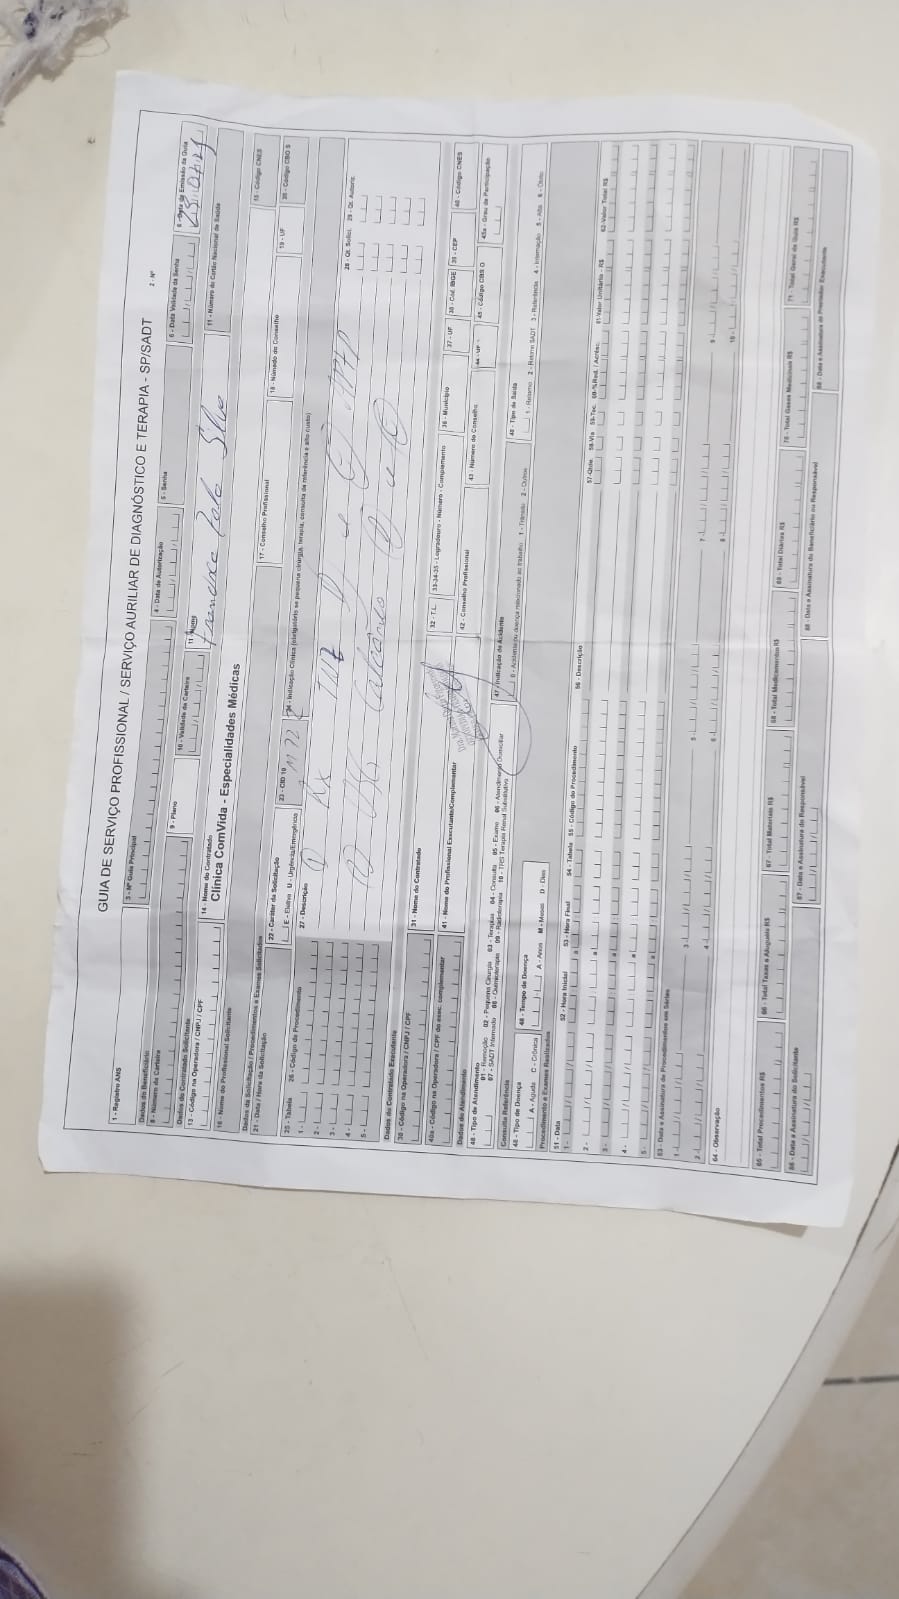 GUIA DE SERVIÇO PROFISSIONAL / SERVIÇO AURILIAR DE DIAGNÓSTICO E TERAPIA - SP/SADT
2 - Nº
1 - Registro ANS
3 - Nº Guia Principal
4 - Data de Autorização
5 - Senha
6 - Data Validade da Senha
Data de Emissão da Guia
Dados do Beneficiário
8 - Número da Carteira
9 - Plano
10 - Validade da Carteira
11 - Nome
Silva
11 - Número do Cartão Nacional de Saúde
Dados do Contratado Solicitante
13 - Código na Operadora / CNPJ / CPF
14 - Nome do Contratado
Clínica ComVida - Especialidades Médicas
15 - Código CNES
16 - Nome do Profissional Solicitante
17 - Conselho Profissional
18 - Número do Conselho
19 - UF
20 - Código CBO S
Dados da Solicitação / Procedimentos e Exames Solicitados
21 - Data / Hora da Solicitação
22 - Caráter da Solicitação
E - Eletiva U - Urgência/Emergência
23 - CID 10
M 72
24 - Indicação Clínica (obrigatório se pequena cirurgia, terapia, consulta de referência e alto custo)
25 - Tabela
26 - Código do Procedimento
27 - Descrição
28 - Qt. Solict.
29 - Qt. Autoriz.
1 -
2 -
3 -
4 -
5 -
① Rx TNZ Ⓓ e Ⓔ AP+P
② USG Calcâneo Ⓓ e Ⓔ
Dados do Contratado Executante
30 - Código na Operadora / CNPJ / CPF
31 - Nome do Contratado
32 - T.L.
33-34-35 - Logradouro - Número - Complemento
36 - Município
37 - UF
38 - Cód. IBGE
39 - CEP
40 - Código CNES
40a - Código na Operadora / CPF do exec. complementar
41 - Nome do Profissional Executante/Complementar
42 - Conselho Profissional
43 - Número do Conselho
44 - UF
45 - Código CBS O
45a - Grau de Participação
Dados do Atendimento
46 - Tipo de Atendimento
01 - Remoção 02 - Pequena Cirurgia 03 - Terapias 04 - Consulta 05 - Exame 06 - Atendimento Domiciliar
07 - SADT Internado 08 - Quimioterapia 09 - Radioterapia 10 - TRS Terapia Renal Substitutiva
47 - Indicação de Acidente
0 - Acidente ou doença relacionado ao trabalho 1 - Trânsito 2 - Outros
48 - Tipo de Saída
1 - Retorno 2 - Retorno SADT 3 - Referência 4 - Internação 5 - Alta 6 - Óbito
Consulta Referência
48 - Tipo de Doença
A - Aguda C - Crônica
48 - Tempo de Doença
A - Anos M - Meses D - Dias
Procedimento e Exames Realizados
51 - Data
52 - Hora Inicial
53 - Hora Final
54 - Tabela
55 - Código do Procedimento
56 - Descrição
57-Qtde.
58-Via
59-Tec.
60-%Red. / Acrésc.
61-Valor Unitário - R$
62-Valor Total R$
1 -
2 -
3 -
4 -
5 -
63 - Data e Assinatura de Procedimentos em Séries
1 -
3 -
5 -
7 -
9 -
2 -
4 -
6 -
8 -
10 -
64 - Observação
65 - Total Procedimentos R$
66 - Total Taxas e Aluguéis R$
67 - Total Materiais R$
68 - Total Medicamentos R$
69 - Total Diárias R$
70 - Total Gases Medicinais R$
71 - Total Geral da Guia R$
86 - Data e Assinatura do Solicitante
87 - Data e Assinatura do Responsável
88 - Data e Assinatura do Beneficiário ou Responsável
89 - Data e Assinatura do Prestador Executante